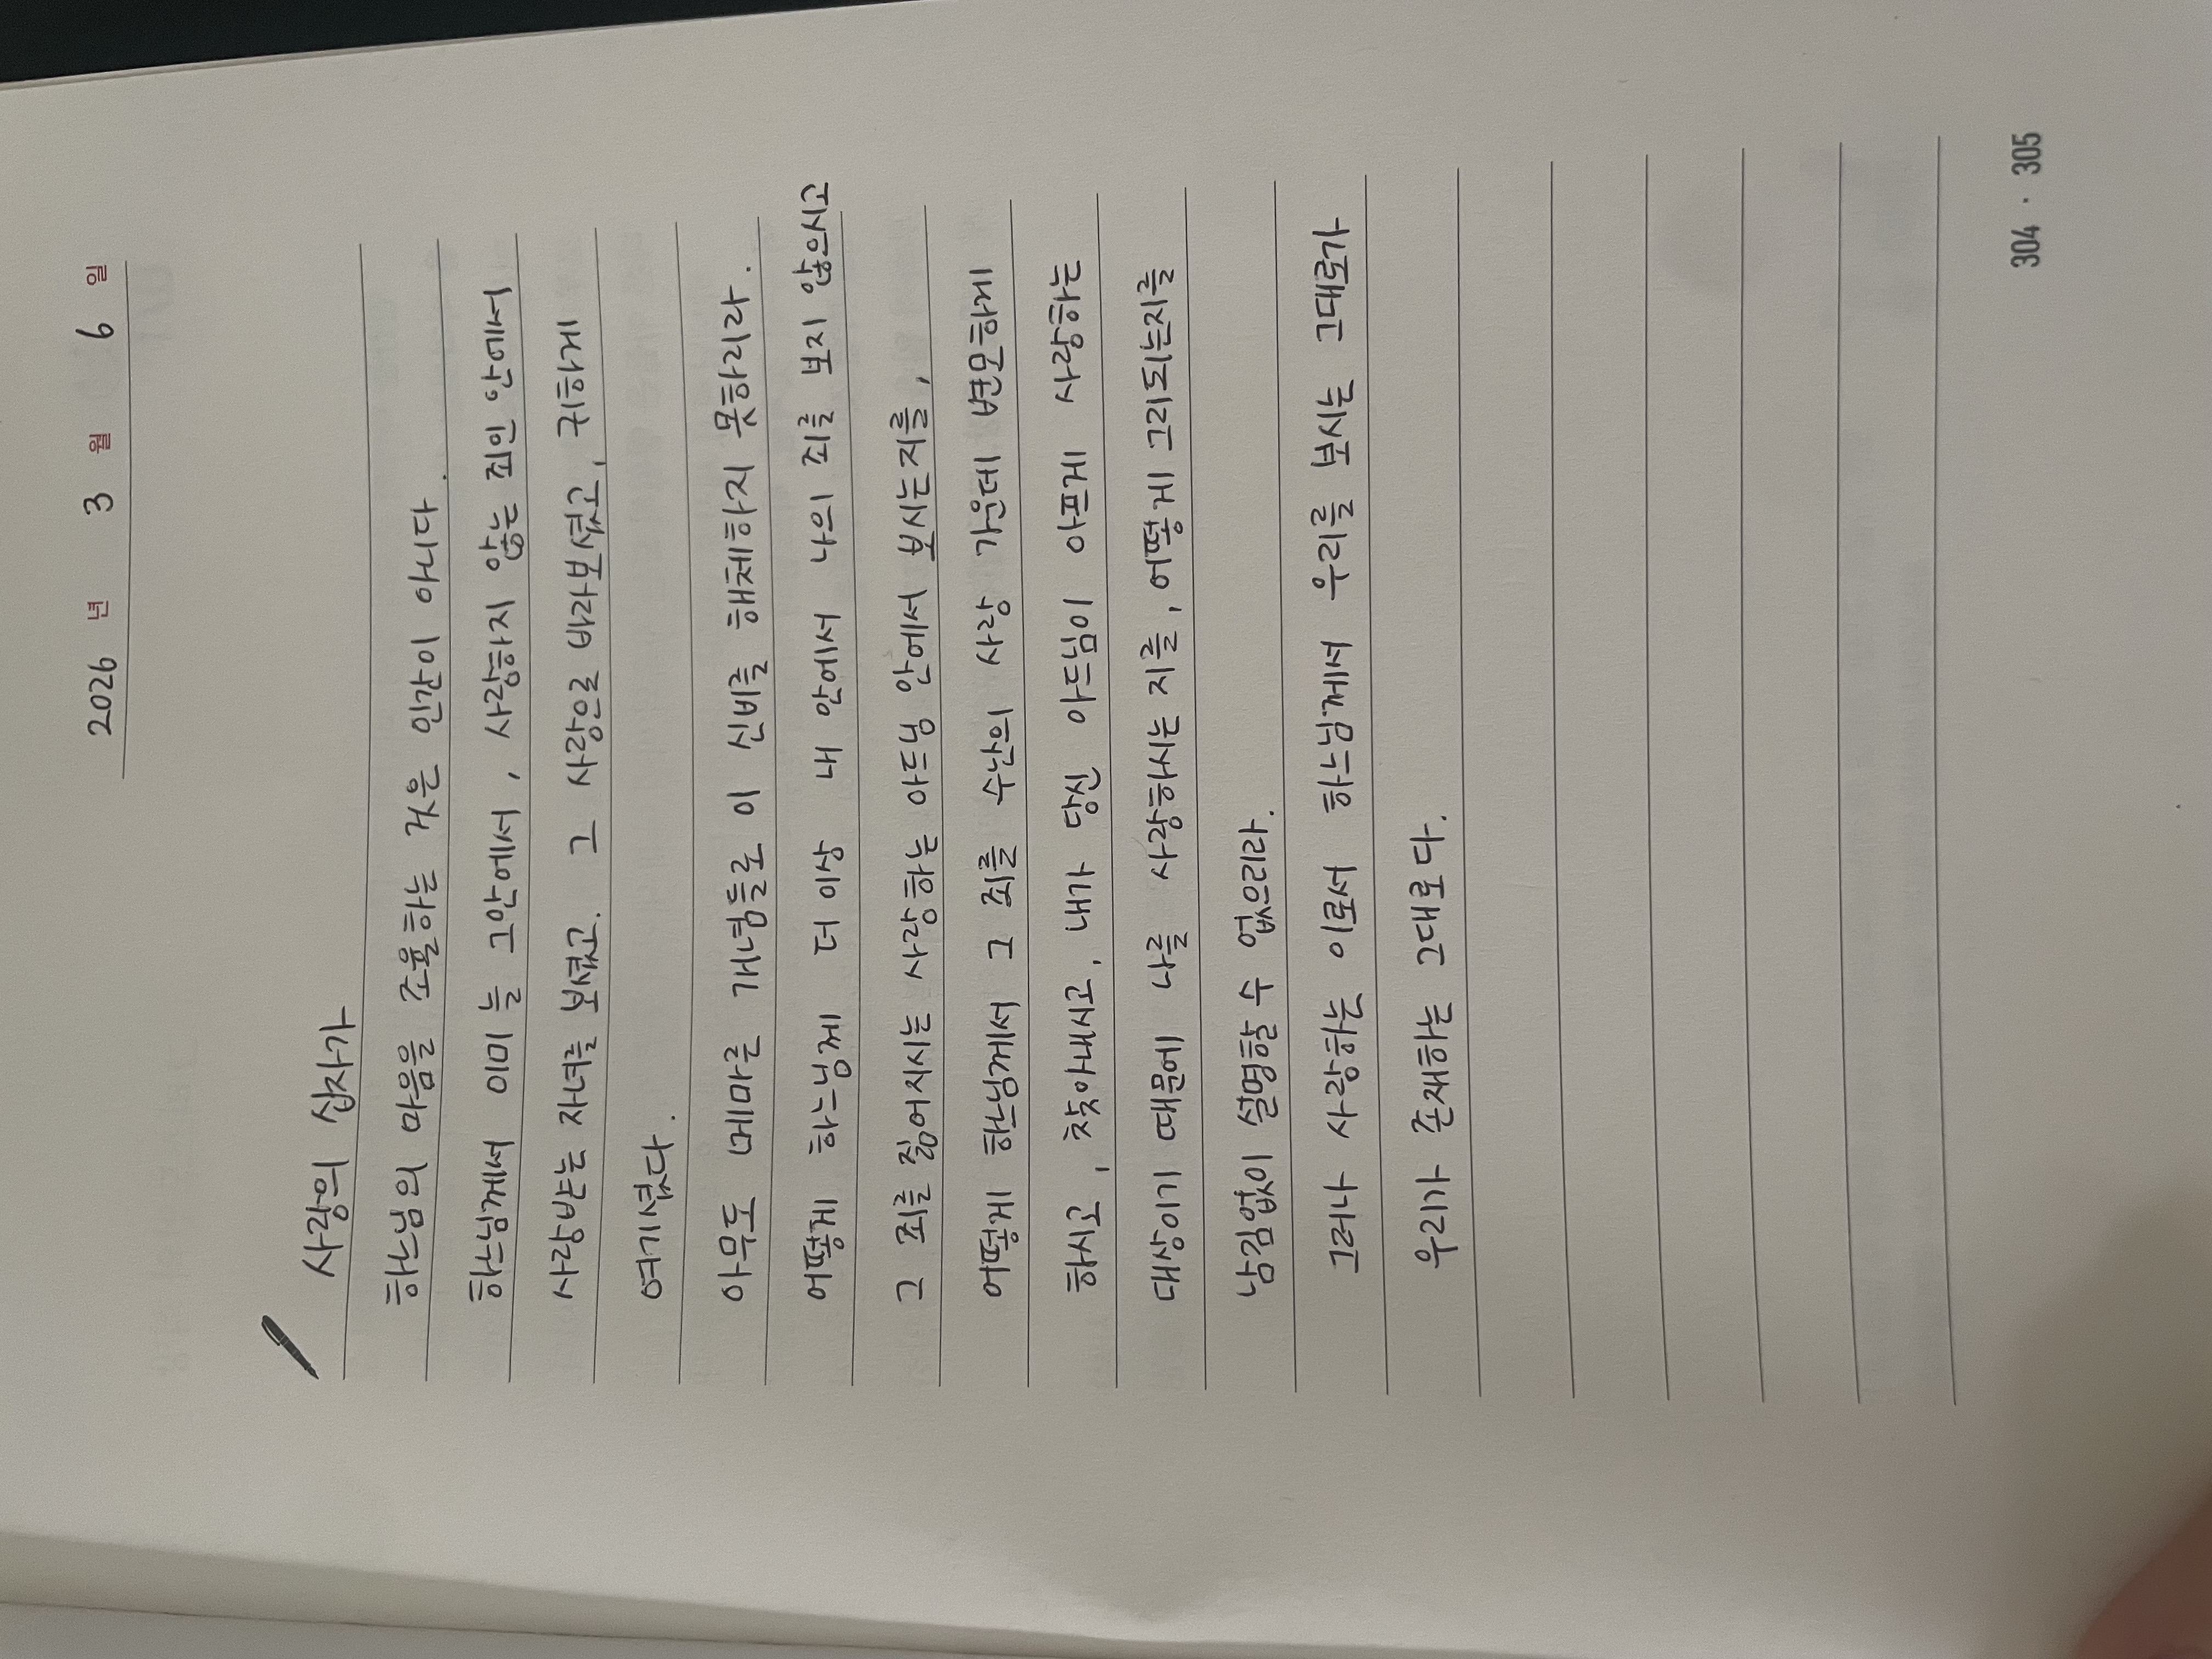 2026 년 3 월 6 일
사랑의 십자가
하느님의 마음을 조율하는 것은 인간이 아니다.
하느님께서 이미 늘 그안에서, 사랑하지 않는 죄인 안에서
사랑받는 자녀를 보셨고. 그 사랑으로 바라보셨고, 귀하게
여기셨다.
아무도 메마른 개념들로 이 신비를 해체하지 못하리라.
어떻게 하느님께 더 이상 내 안에서 나의 죄를 보지 않으시고
그 죄를 짊어지시는 사랑하는 아드님 안에서 보시는지를,
어떻게 하느님께서 그 죄를 수난의 사랑 가운데 변모하게
하시고, 찾아내시고, 내가 당신 아드님이 아프게 사랑하는
대상이기 때문에 나를 사랑하시는 지를, 어떻게 그리되는지를
남김없이 설명할 수 없으리라.
그러나 사랑하는 이로서 하느님께서 우리를 보시는 그대로가
우리가 존재하는 그대로다.
304 · 305